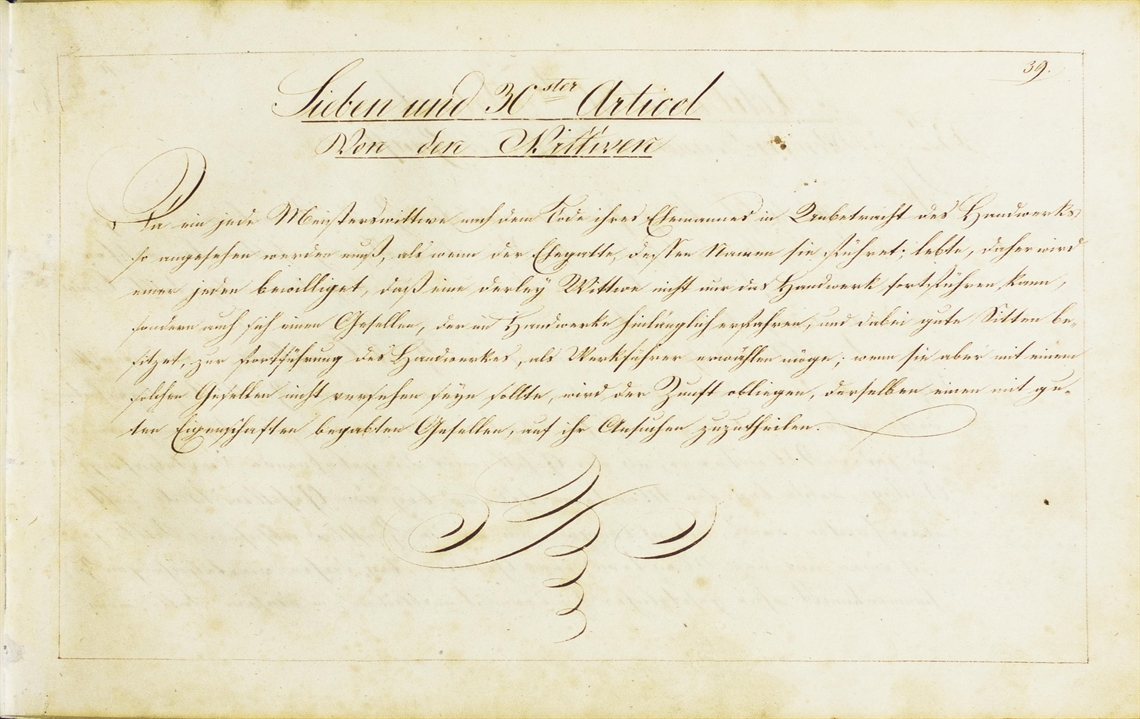 39.
Sieben und 30ster Articel
Von den Wittwen
Da ein jede Meisterswittwe nach dem Tode ihres Ehemannes in Anbetracht des Handwerks
so angesehen werden muß, als wenn der Ehegatte, dessen Namen sie führet, lebte, daher wird
einer jeden bewilliget, daß eine derley Wittwe nicht nur das Handwerk fortführen kann,
sondern auch sich einen Gesellen, der im Handwerke hinlänglich erfahren, und dabei gute Sitten be-
sitzet, zur Fortführung des Handwerkes, als Werkführer erwählen möge; wenn sie aber mit einem
solchen Gesellen nicht versehen seyn sollte, wird der Zunft obliegen, derselben einen mit gu-
ten Eigenschaften begabten Gesellen, auf ihr Ansuchen zuzutheilen.